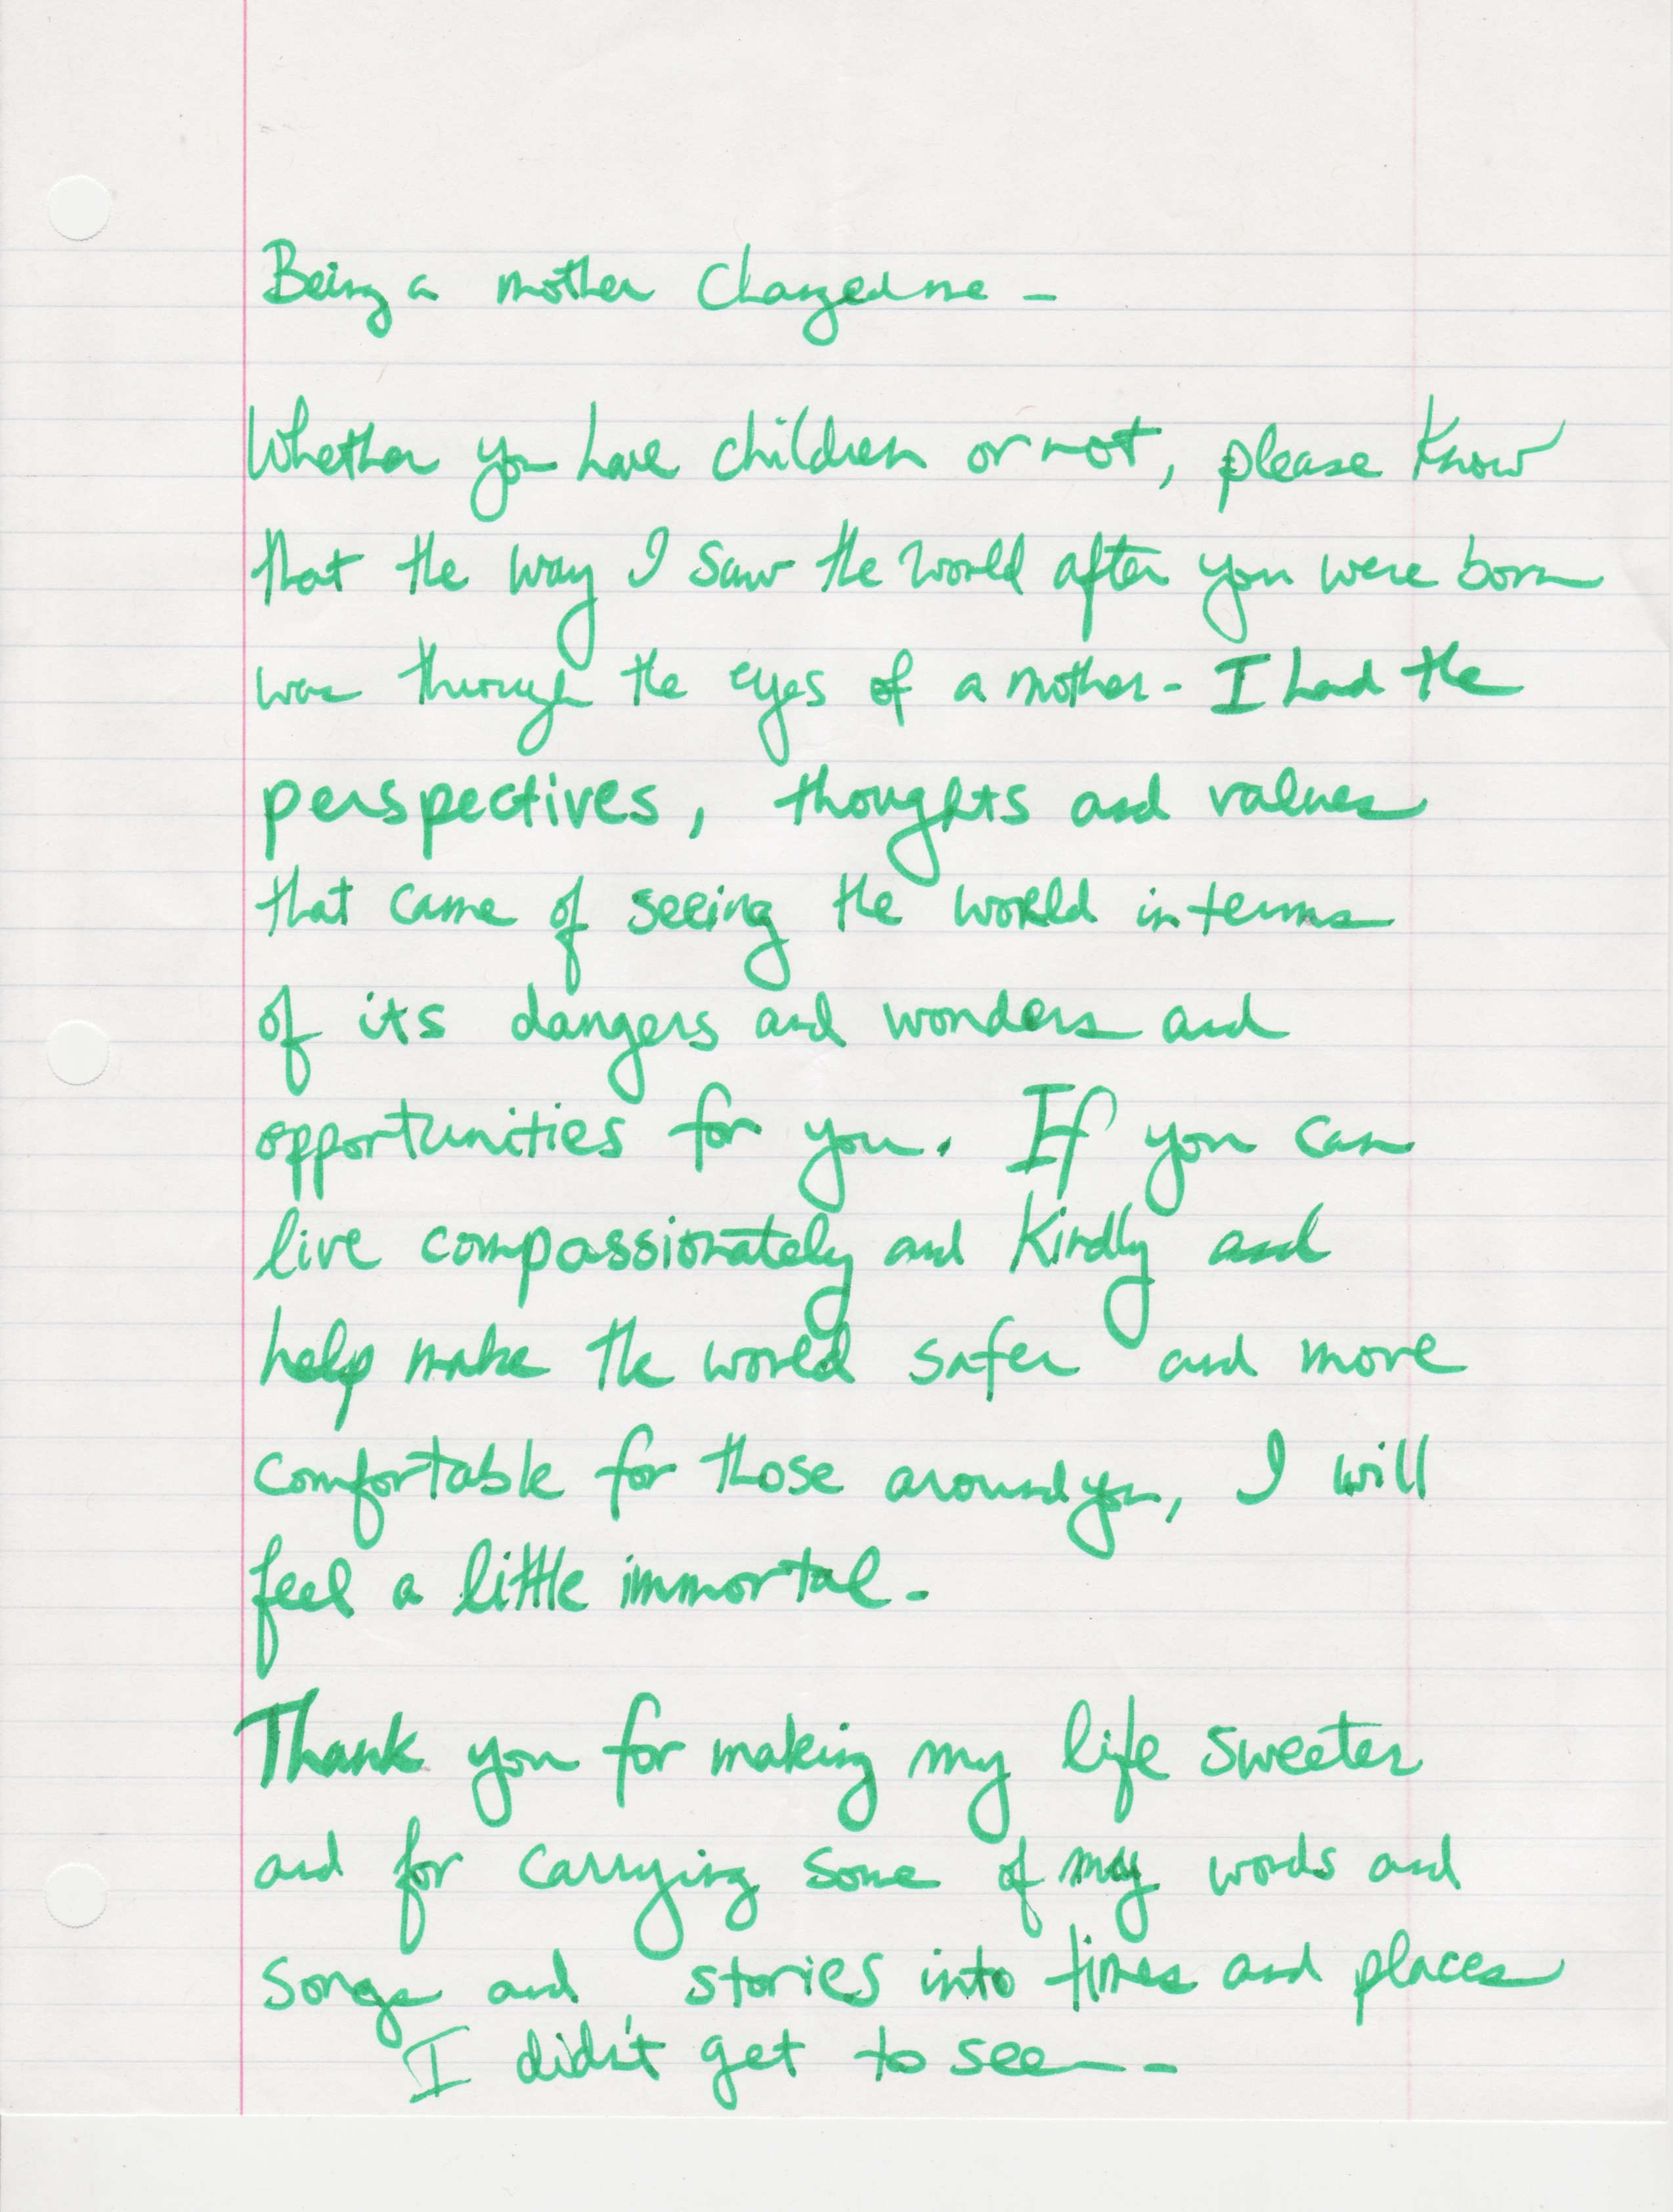 Being a mother changed me -
Whether you have children or not, please know
that the way I saw the world after you were born
was through the eyes of a mother - I had the
perspectives, thoughts and values
that came of seeing the world in terms
of its dangers and wonders and
opportunities for you. If you can
live compassionately and kindly and
help make the world safer and more
comfortable for those around you, I will
feel a little immortal -
Thank you for making my life sweeter
and for carrying some of my words and
songs and stories into times and places
I didn't get to see -